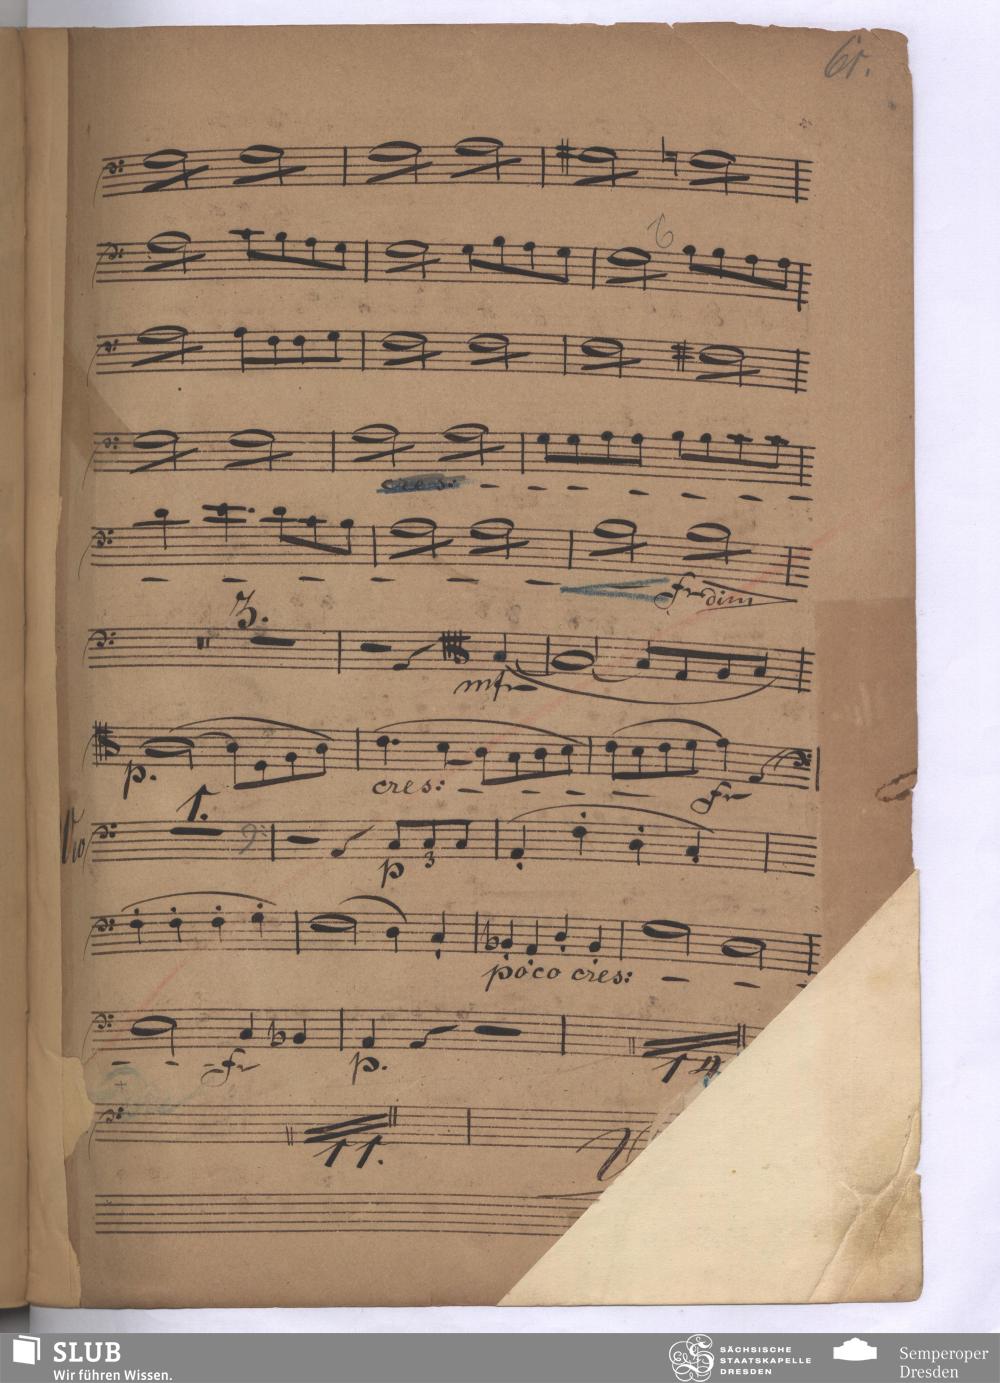 61.
cres:
fr dim
3.
mfr
p.
cres:
fr
1.
p
3
poco cres:
fr
p.
14
11.
SLUB
Wir führen Wissen.
SÄCHSISCHE
STAATSKAPELLE
DRESDEN
Semperoper
Dresden